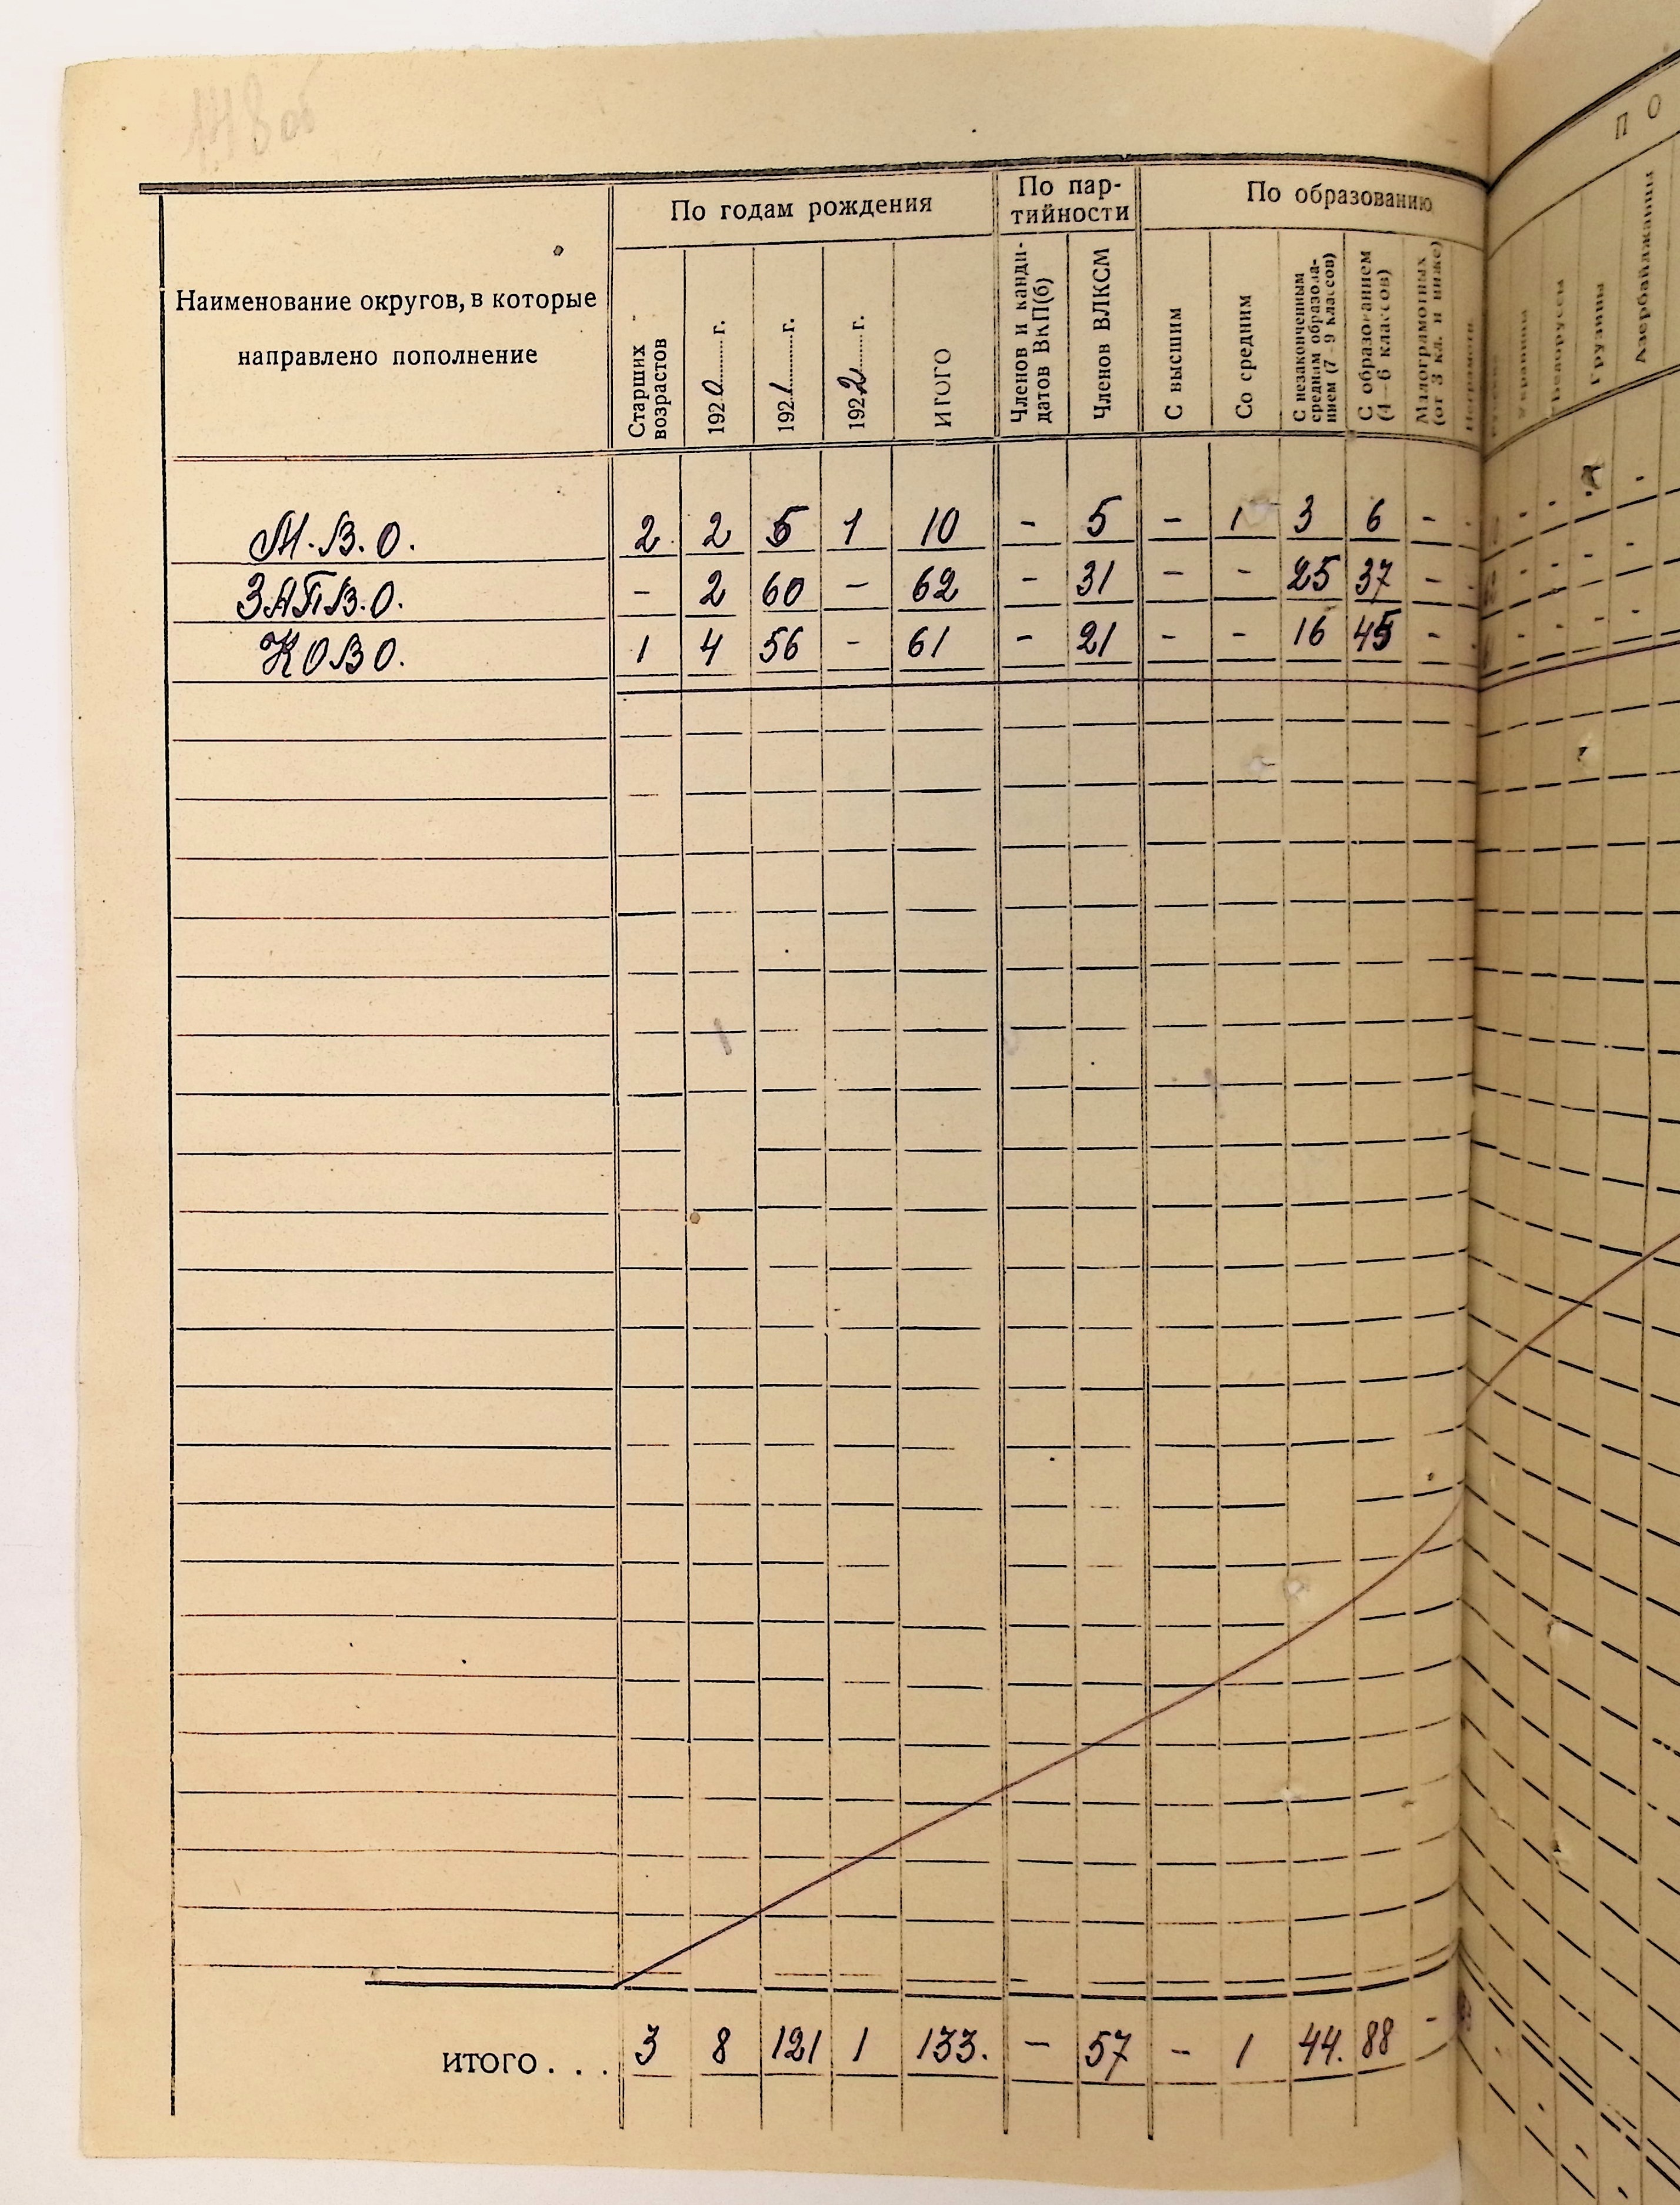 148 об
По годам рождения
По пар-
тийности
По образованию
П О
Наименование округов, в которые
направлено пополнение
Старших
возрастов
1920 г.
1921 г.
1922 г.
ИТОГО
Членов и канди-
датов ВКП(б)
Членов ВЛКСМ
С высшим
Со средним
С незаконченным
средним образова-
нием (7–9 классов)
С образованием
(4–6 классов)
Малограмотных
(от 3 кл. и ниже)
Украинцы
Белоруссы
Грузины
Азербайджанцы
М.В.О. 2 2 5 1 10 - 5 - 1 3 6 -
ЗАПВ.О. - 2 60 - 62 - 31 - - 25 37 -
КОВО. 1 4 56 - 61 - 21 - - 16 45 -
ИТОГО . . . 3 8 121 1 133. - 57 - 1 44. 88 -